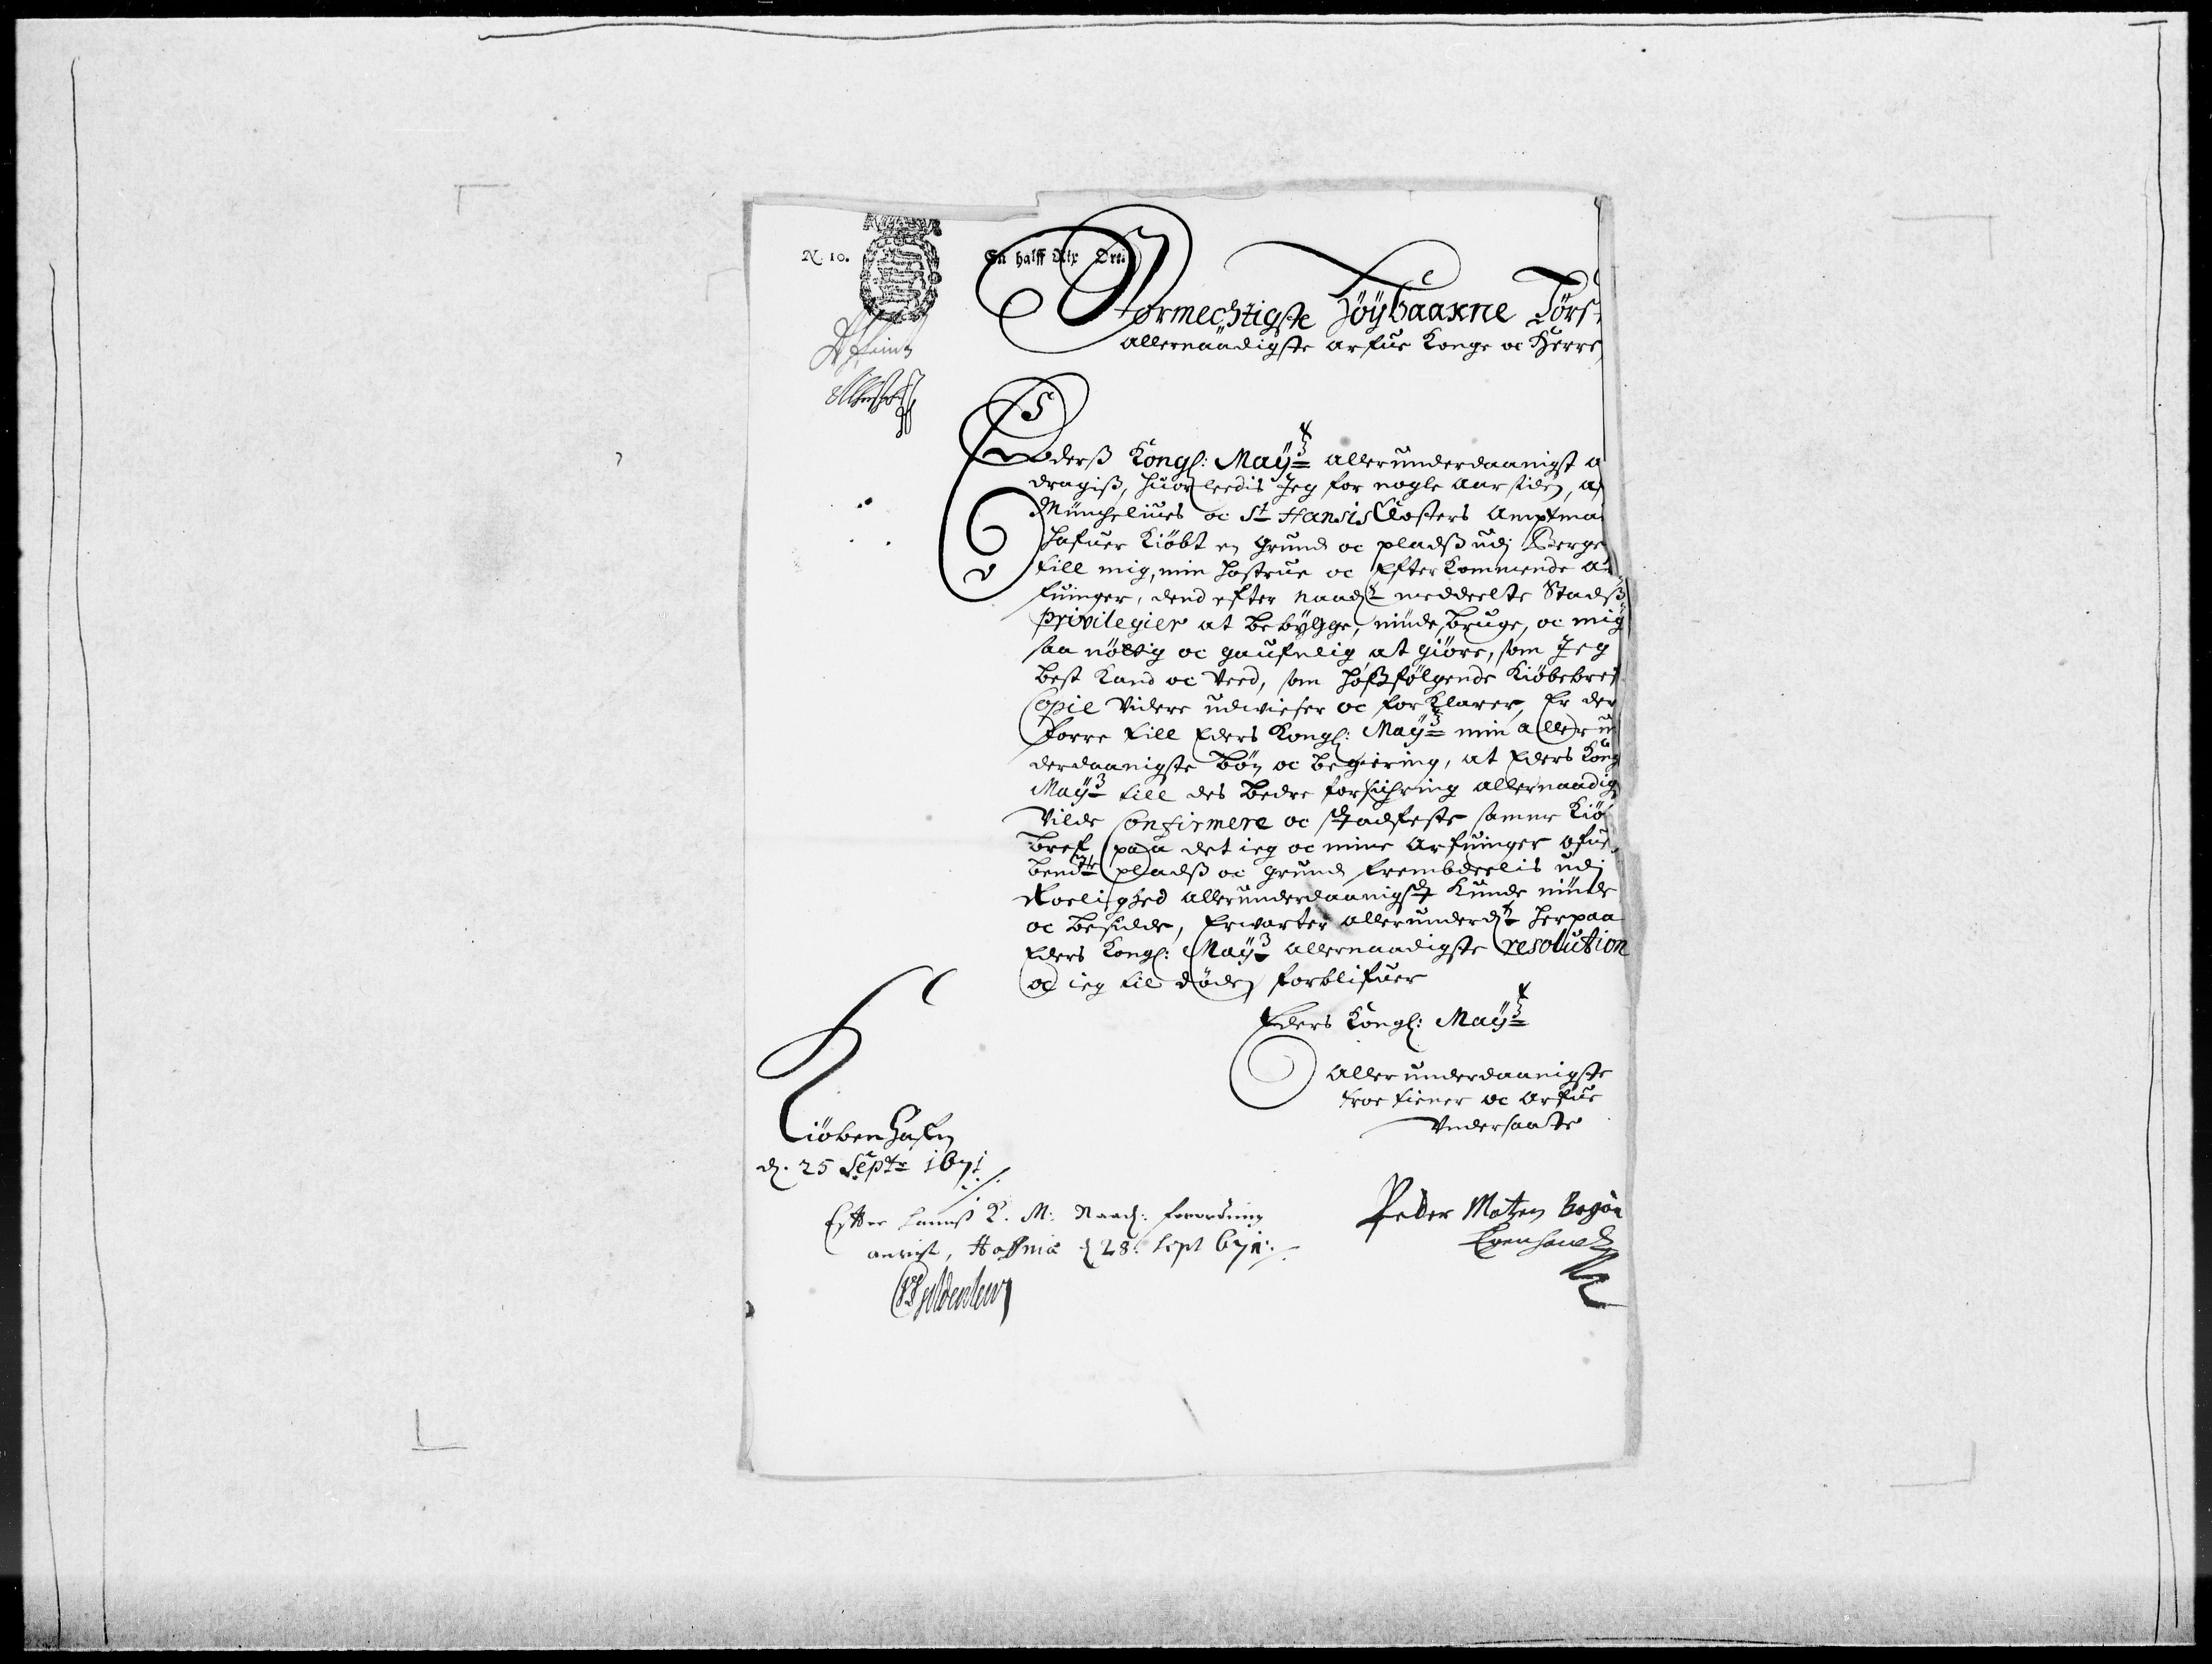 N. 10.
En halff Rdr Ort
Stormechtigste Høÿbaarne Førs
Allernaadigste arfue Konge oc Herre
Ederß Kongl: Maÿtz allerunderdaanigst a
dragiß, huorledis Jeg for nogle Aar siden, af
Münchelius oc St Hansis Closters Amptma
hafuer Kiøbt en grund oc pladß udj Berge
till mig, min hostrue oc Efterkommende Ar
fuinger, dend efter naadst meddeelte Stadß
privilegier at bebÿgge, nÿde, bruge, oc mig
saa nøttig oc gaufnlig at giøre, som Jeg
best Kand oc Veed, som hoßfølgende Kiøbebref
Copie Videre udvieser oc forklarer, Er der
forre till Eders Kongl: Maÿtz min allerun
derdaanigste bøn oc begiering, at Eders Kong
Maÿtz till des bedre forsichring allernaadigst
Vilde Confirmere oc stadfeste samme Kiø
bref, paa det ieg oc mine Arfuinger ofue
bendte pladß oc grund frembdeelis udj
Roelighed allerunderdaanigst Kunde nÿde
oc besidde, Erwarter allerunderdst herpaa
Eders Kongl: Maÿtz allernaadigste resolution
oc ieg til døden forblifuer
Eders Kongl: Maÿtz
Allerunderdaanigste
troe tiener oc Arfue
Vndersaatte
Kiøbenhafn
d. 25 Septr 1671
Peder Matzen
Egenhand
Efter hannß K. M: Naadj: forordning
anvist, Hafniæ d 28. Sept 671.
Gÿldenleu